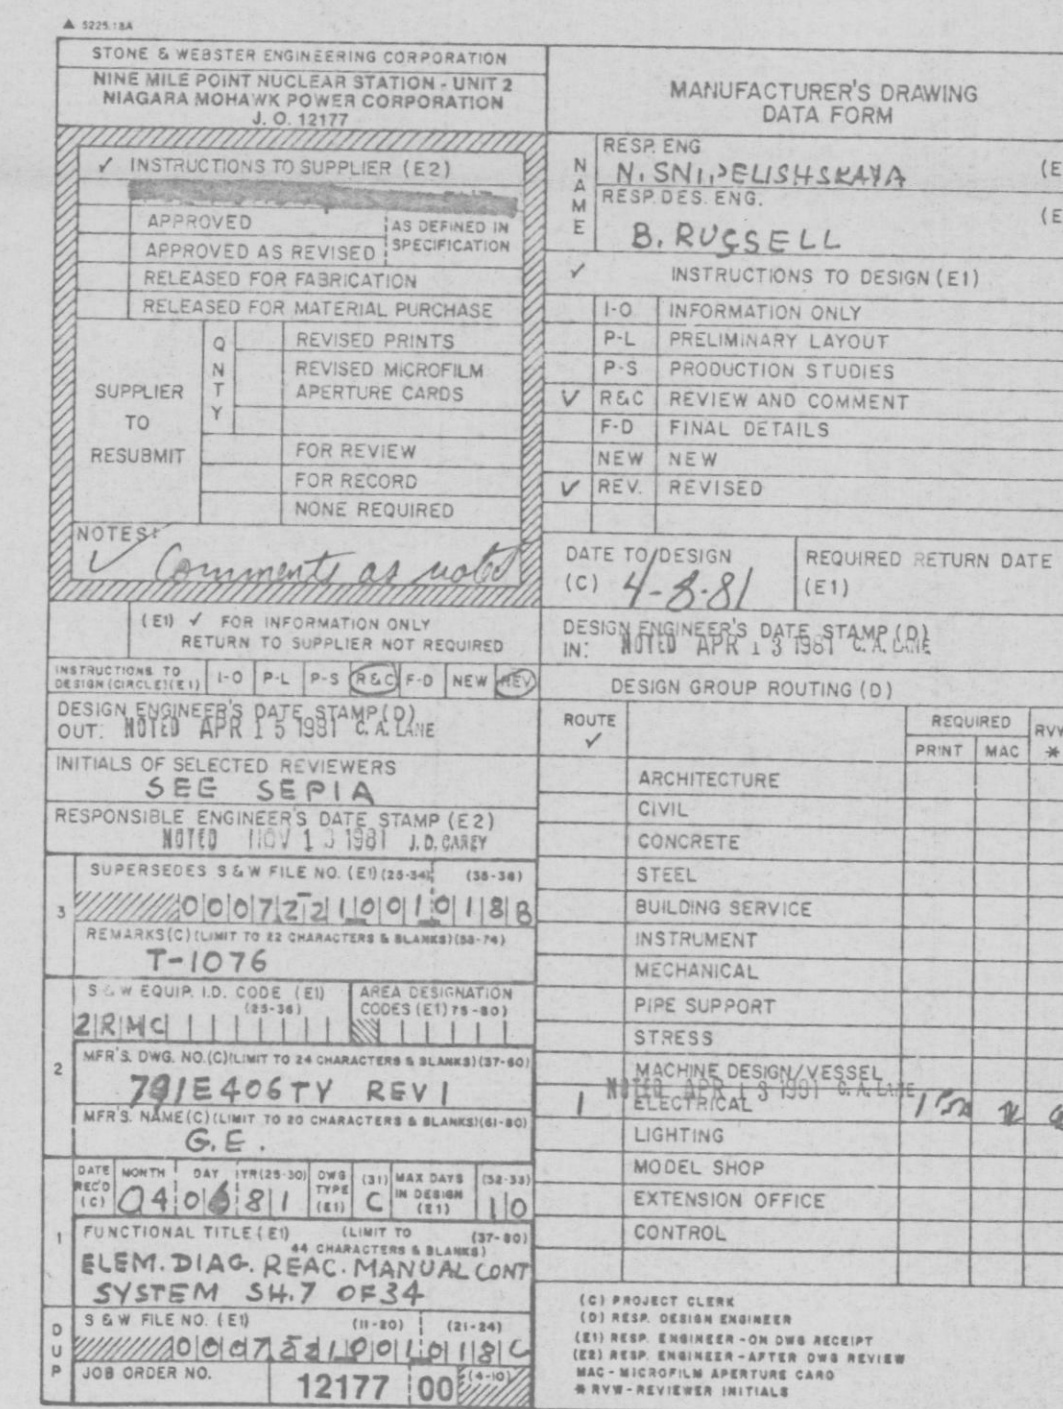 ▲ 5225.18A
STONE & WEBSTER ENGINEERING CORPORATION
NINE MILE POINT NUCLEAR STATION - UNIT 2
NIAGARA MOHAWK POWER CORPORATION
J. O. 12177
✓ INSTRUCTIONS TO SUPPLIER (E2)
APPROVED
APPROVED AS REVISED
AS DEFINED IN
SPECIFICATION
RELEASED FOR FABRICATION
RELEASED FOR MATERIAL PURCHASE
SUPPLIER
TO
RESUBMIT
QNTY
REVISED PRINTS
REVISED MICROFILM
APERTURE CARDS
FOR REVIEW
FOR RECORD
NONE REQUIRED
NOTES:
✓ Comments as noted
(E1) ✓ FOR INFORMATION ONLY
RETURN TO SUPPLIER NOT REQUIRED
INSTRUCTIONS TO
DESIGN (CIRCLE)(E1)
I-O P-L P-S R&C F-D NEW REV
DESIGN ENGINEER'S DATE STAMP (D)
OUT: NOTED APR 15 1981 C. A. LANE
INITIALS OF SELECTED REVIEWERS
SEE SEPIA
RESPONSIBLE ENGINEER'S DATE STAMP (E2)
NOTED NOV 13 1981 J. D. CAREY
3
SUPERSEDES S & W FILE NO. (E1)(25-34) (35-36)
REMARKS(C)(LIMIT TO 22 CHARACTERS & BLANKS)(53-74)
T-1076
2
S & W EQUIP. I.D. CODE (E1)
(25-36)
2RMC
AREA DESIGNATION
CODES (E1) 75-80)
MFR'S. DWG. NO.(C)(LIMIT TO 24 CHARACTERS & BLANKS)(37-60)
791E406TY REV 1
MFR'S. NAME(C)(LIMIT TO 20 CHARACTERS & BLANKS)(61-80)
G.E.
1
DATE
REC'D
(C)
MONTH DAY YR(25-30)
04 06 81
DWG
TYPE
(E1)
(31)
C
MAX DAYS
IN DESIGN
(E1)
(32-33)
10
FUNCTIONAL TITLE (E1) (LIMIT TO (37-80)
44 CHARACTERS & BLANKS)
ELEM. DIAG. REAC. MANUAL CONT
SYSTEM SH.7 OF 34
DUP
S & W FILE NO. (E1) (11-20) (21-24)
JOB ORDER NO.
12177 00 (4-10)
MANUFACTURER'S DRAWING
DATA FORM
NAME
RESP. ENG
(E
RESP. DES. ENG.
(E
B. RUSSELL
✓ INSTRUCTIONS TO DESIGN (E1)
I-O INFORMATION ONLY
P-L PRELIMINARY LAYOUT
P-S PRODUCTION STUDIES
✓ R&C REVIEW AND COMMENT
F-D FINAL DETAILS
NEW NEW
✓ REV. REVISED
DATE TO DESIGN
(C) 4-8-81
REQUIRED RETURN DATE
(E1)
DESIGN ENGINEER'S DATE STAMP (D)
IN: NOTED APR 13 1981 C. A. LANE
DESIGN GROUP ROUTING (D)
ROUTE
✓
REQUIRED
PRINT MAC
RVW
*
ARCHITECTURE
CIVIL
CONCRETE
STEEL
BUILDING SERVICE
INSTRUMENT
MECHANICAL
PIPE SUPPORT
STRESS
MACHINE DESIGN/VESSEL
NOTED APR 13 1981 C. A. LANE
1 ELECTRICAL
LIGHTING
MODEL SHOP
EXTENSION OFFICE
CONTROL
(C) PROJECT CLERK
(D) RESP. DESIGN ENGINEER
(E1) RESP. ENGINEER - ON DWG RECEIPT
(E2) RESP. ENGINEER - AFTER DWG REVIEW
MAC - MICROFILM APERTURE CARD
* RVW - REVIEWER INITIALS